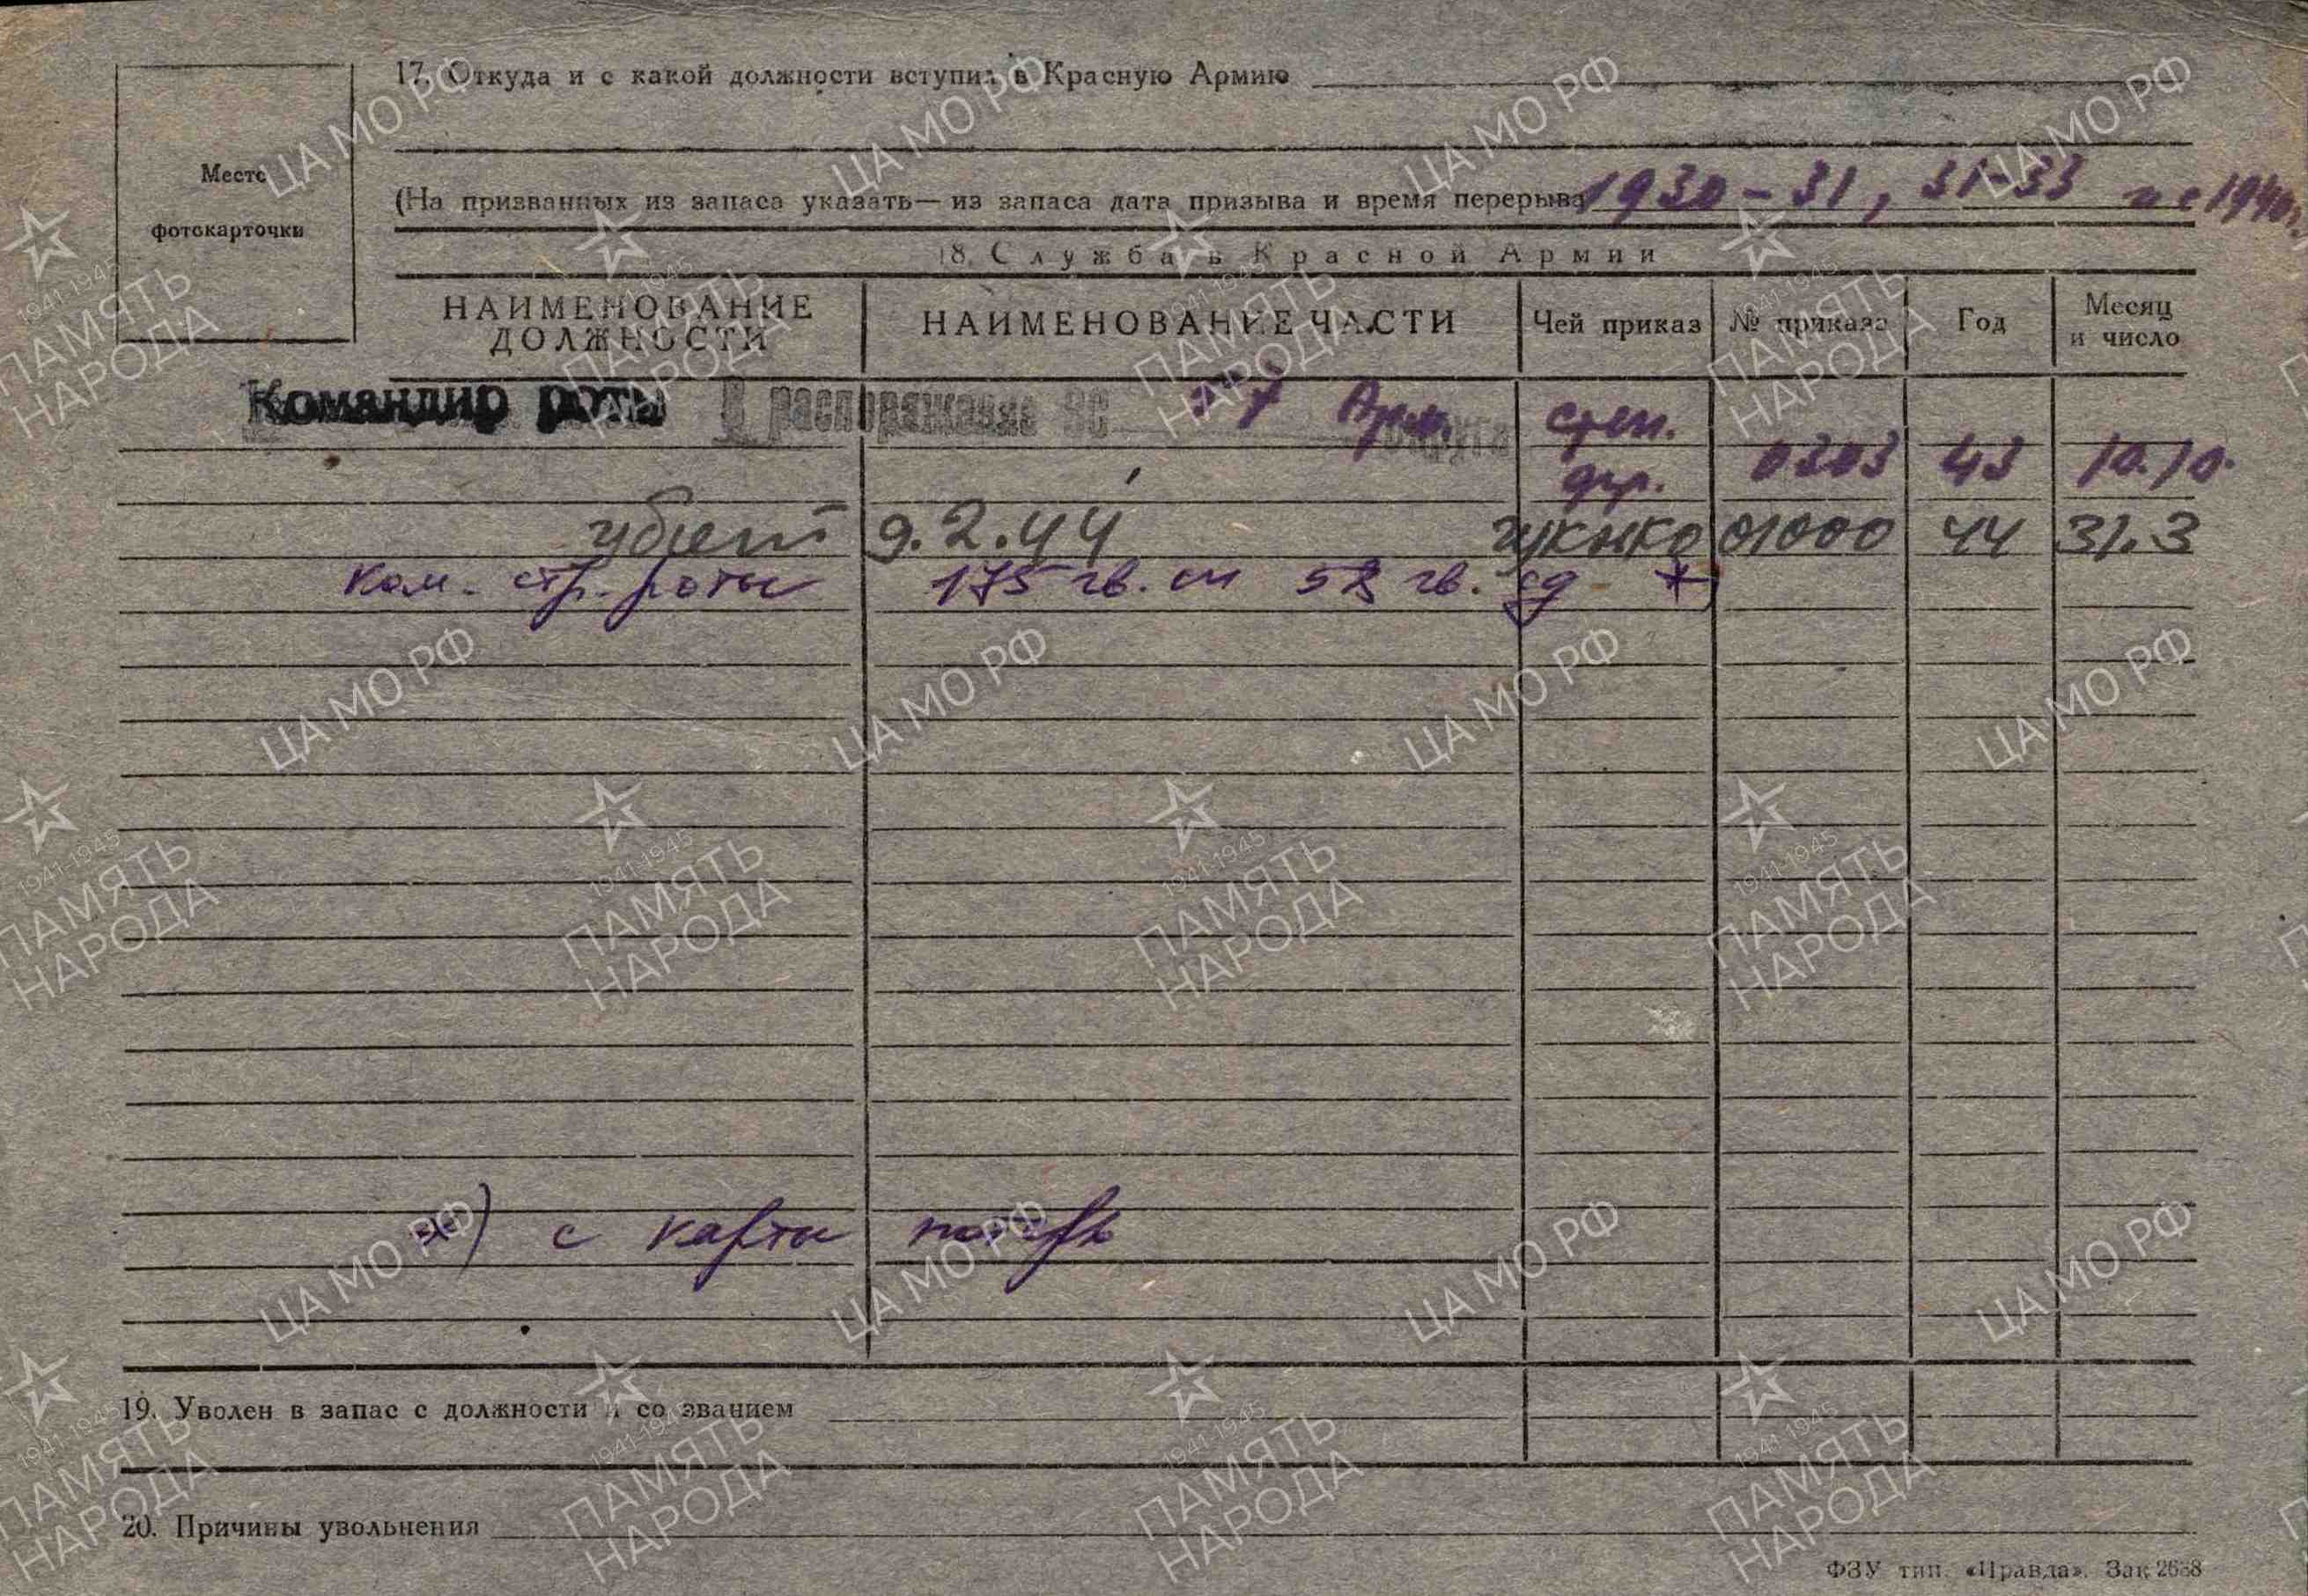 17. Откуда и с какой должности вступил в Красную Армию
Место
фотокарточки
(На призванных из запаса указать— из запаса дата призыва и время перерыва 1930-31, 31-33 и с 1940г.
18. Служба в Красной Армии
НАИМЕНОВАНИЕ ДОЛЖНОСТИ НАИМЕНОВАНИЕ ЧАСТИ Чей приказ № приказа Год Месяц и число
Командир роты В распоряжение ВС Арм. округа степ.
фр. 0303 43 10.10.
убит 9.2.44 гукнко 01000 44 31.3
ком. стр. роты 175 гв. сп 58 гв. сд *)
*) с карты потерь
19. Уволен в запас с должности и со званием
20. Причины увольнения
ФЗУ тип. «Правда». Зак 2688
ЦА МО РФ
1941-1945
ПАМЯТЬ
НАРОДА